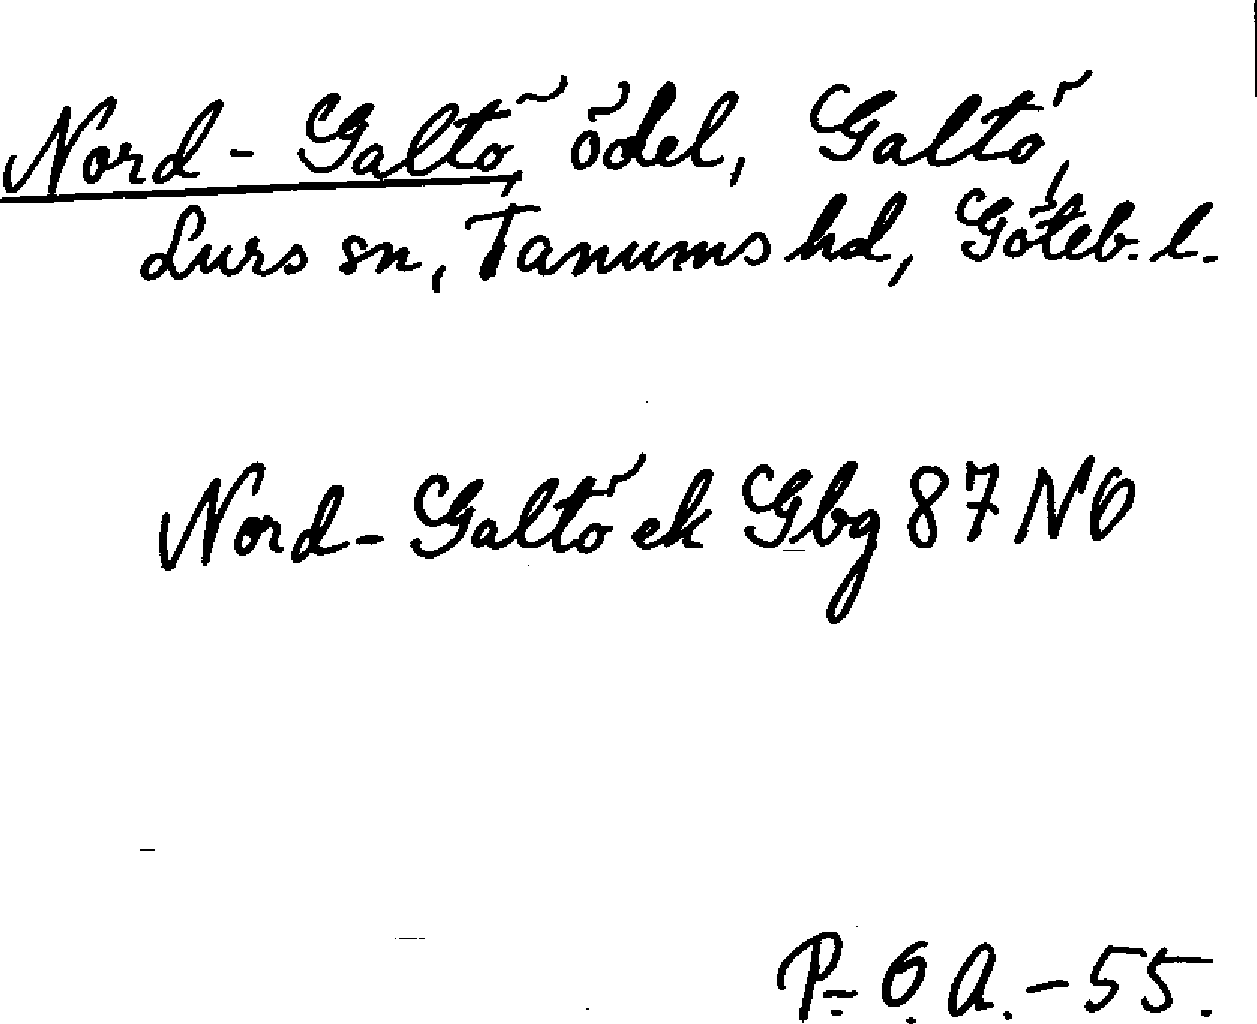 Nord-Galtö, ödel, Galtö,
Lurs sn, Tanums hd, Göteb. l.
Nord-Galtö ek Gbg 87 NO
P.O.A. -55.